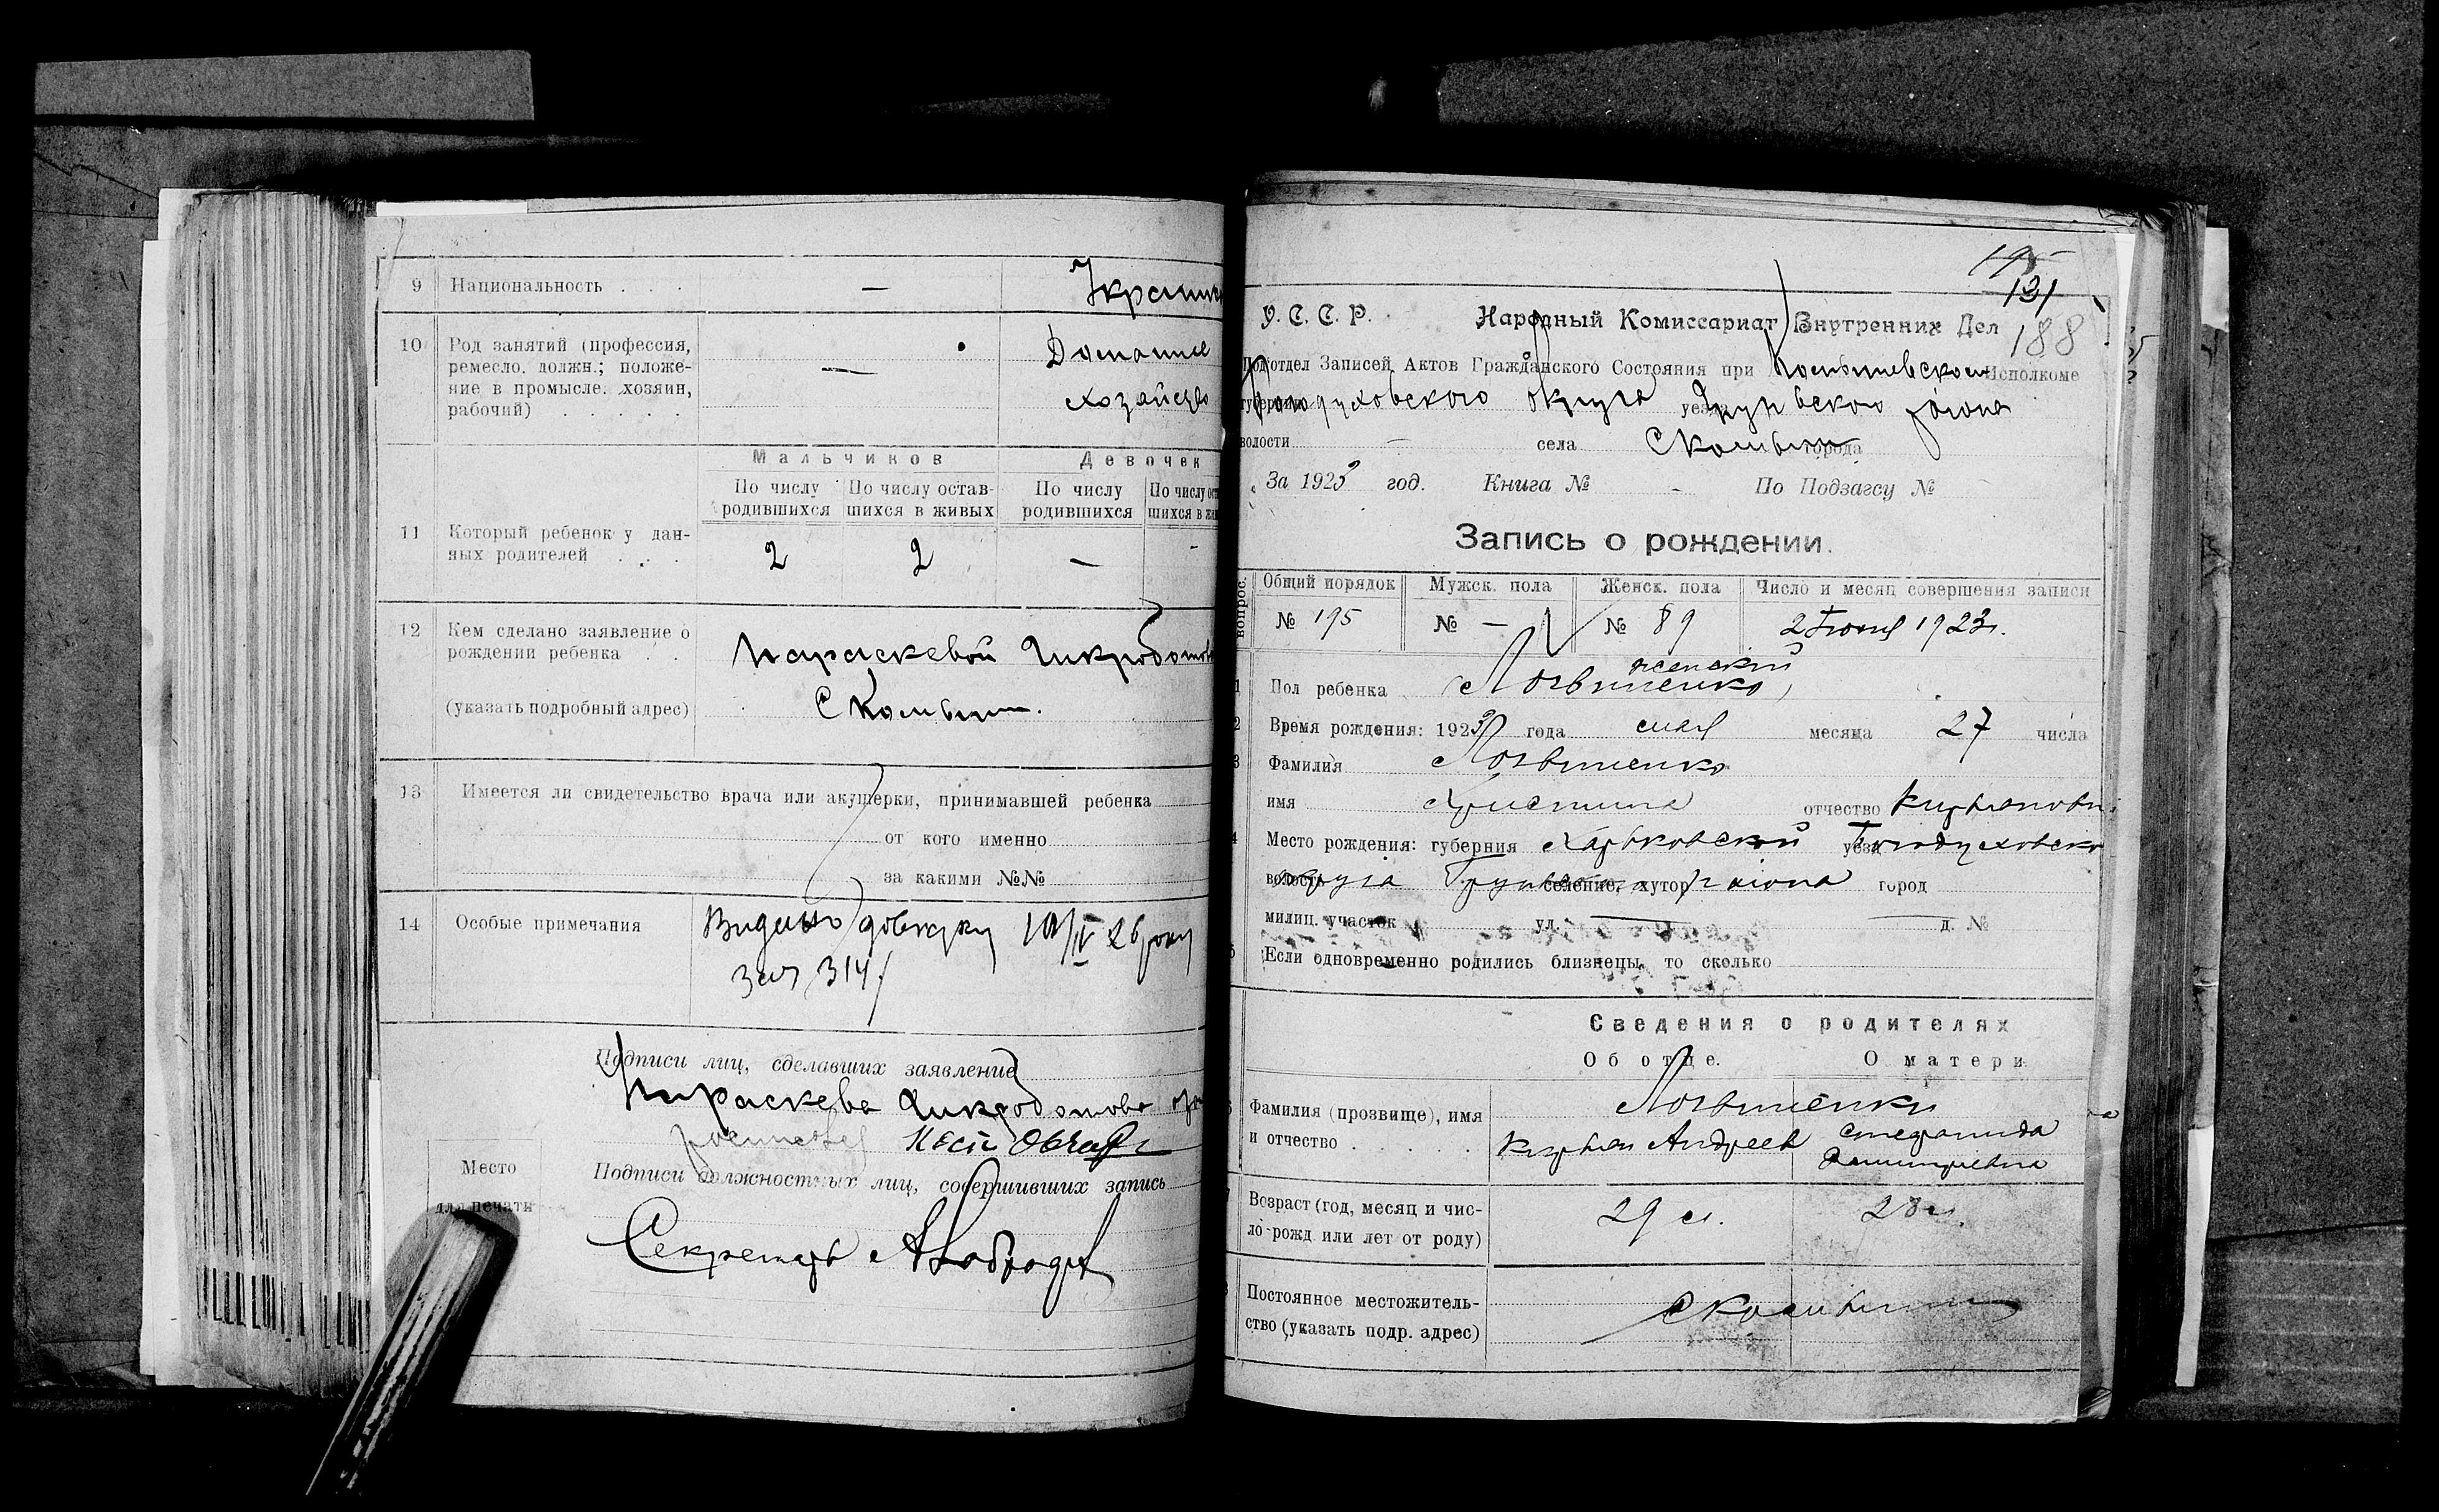 9 Национальность . . . —
10 Род занятий (профессия, Домашнее
ремесло. должн.; положе- —
ние в промысле. хозяин, хозяйство
рабочий) . . . . .
Мальчиков Девочек
По числу По числу остав- По числу
родившихся шихся в живых родившихся
11 Который ребенок у дан-
ных родителей . . . 2 2 — -
12 Кем сделано заявление о
рождении ребенка . . Параскевой
(указать подробный адрес) С
13 Имеется ли свидетельство врача или акушерки, принимавшей ребенка
от кого именно
за какими №№
14 Особые примечания Видано довідку 10/IV 26 року
за № 314
Подписи лиц, сделавших заявление
Параскева
Подписи должностных лиц, совершивших запись
Секретарь
Место
для печати
195
131
188
У. С. С. Р. Народный Комиссариат Внутренних Дел
Подотдел Записей Актов Гражданского Состояния при Исполкоме
губернии Богодуховского округа уезда района
волости — села города
За 1923 год. Книга № - По Подзагсу №
Запись о рождении.
вопрос. Общий порядок Мужск. пола Женск. пола Число и месяц совершения записи
№ 195 № — № 89 2 1923г.
женский
1 Пол ребенка Логвиненко
2 Время рождения: 1923 года мая месяца 27 числа
3 Фамилия Логвиненко
имя Христина отчество
4 Место рождения: губерния Харьковской уезд Богодуховско
волость округа селение, хутор района город
милиц. участок ул. д. №
Если одновременно родились близнецы, то сколько
Сведения о родителях
Об отце. О матери
Логвиненки
Фамилия (прозвище), имя
и отчество . . . . . Андреев Степанида
Дмитриевна
Возраст (год, месяц и чис- 29 л. 28 л.
ло рожд. или лет от роду)
Постоянное местожитель- с
ство (указать подр. адрес)